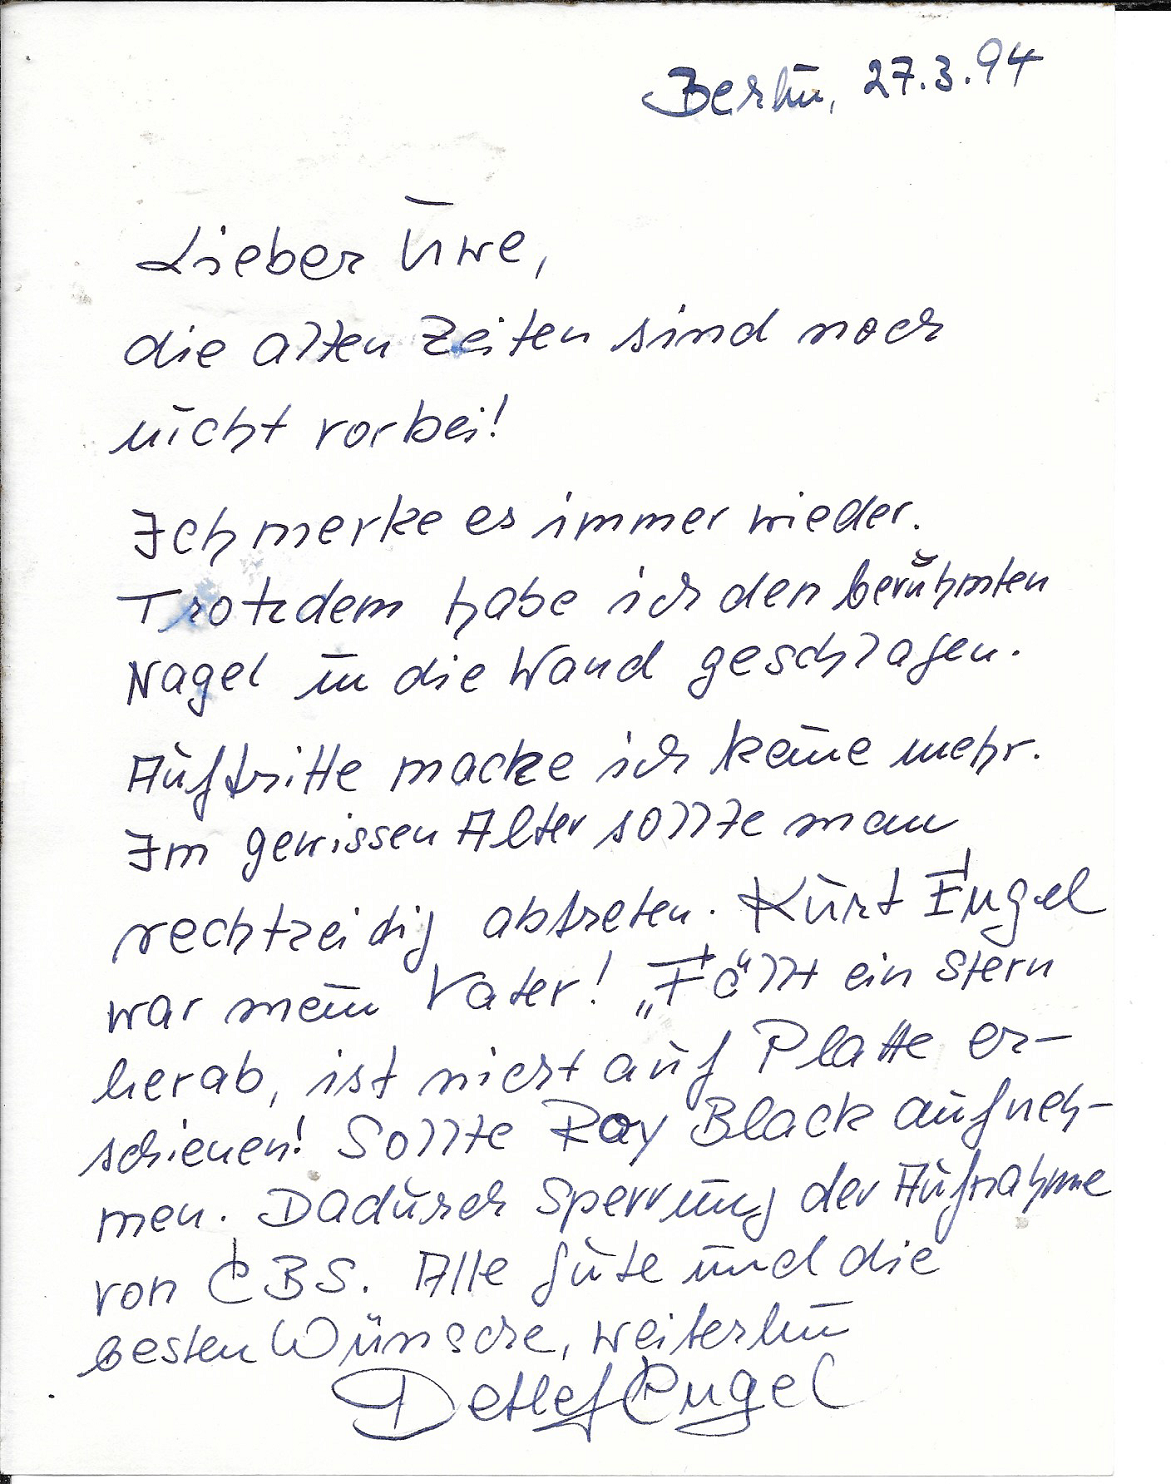 Berlin, 27.3.94
Lieber Uwe,
die alten Zeiten sind noch
nicht vorbei!
Ich merke es immer wieder.
Trotzdem habe ich den berühmten
Nagel in die Wand geschlagen.
Auftritte mache ich keine mehr.
Im gewissen Alter sollte man
rechtzeitig abtreten. Kurt Engel
war mein Vater! „Fällt ein Stern
herab, ist nicht auf Platte er-
schienen! Sollte Roy Black aufneh-
men. Dadurch Sperrung der Aufnahme
von CBS. Alle gute und die
besten Wünsche, weiterhin
Detlef Engel